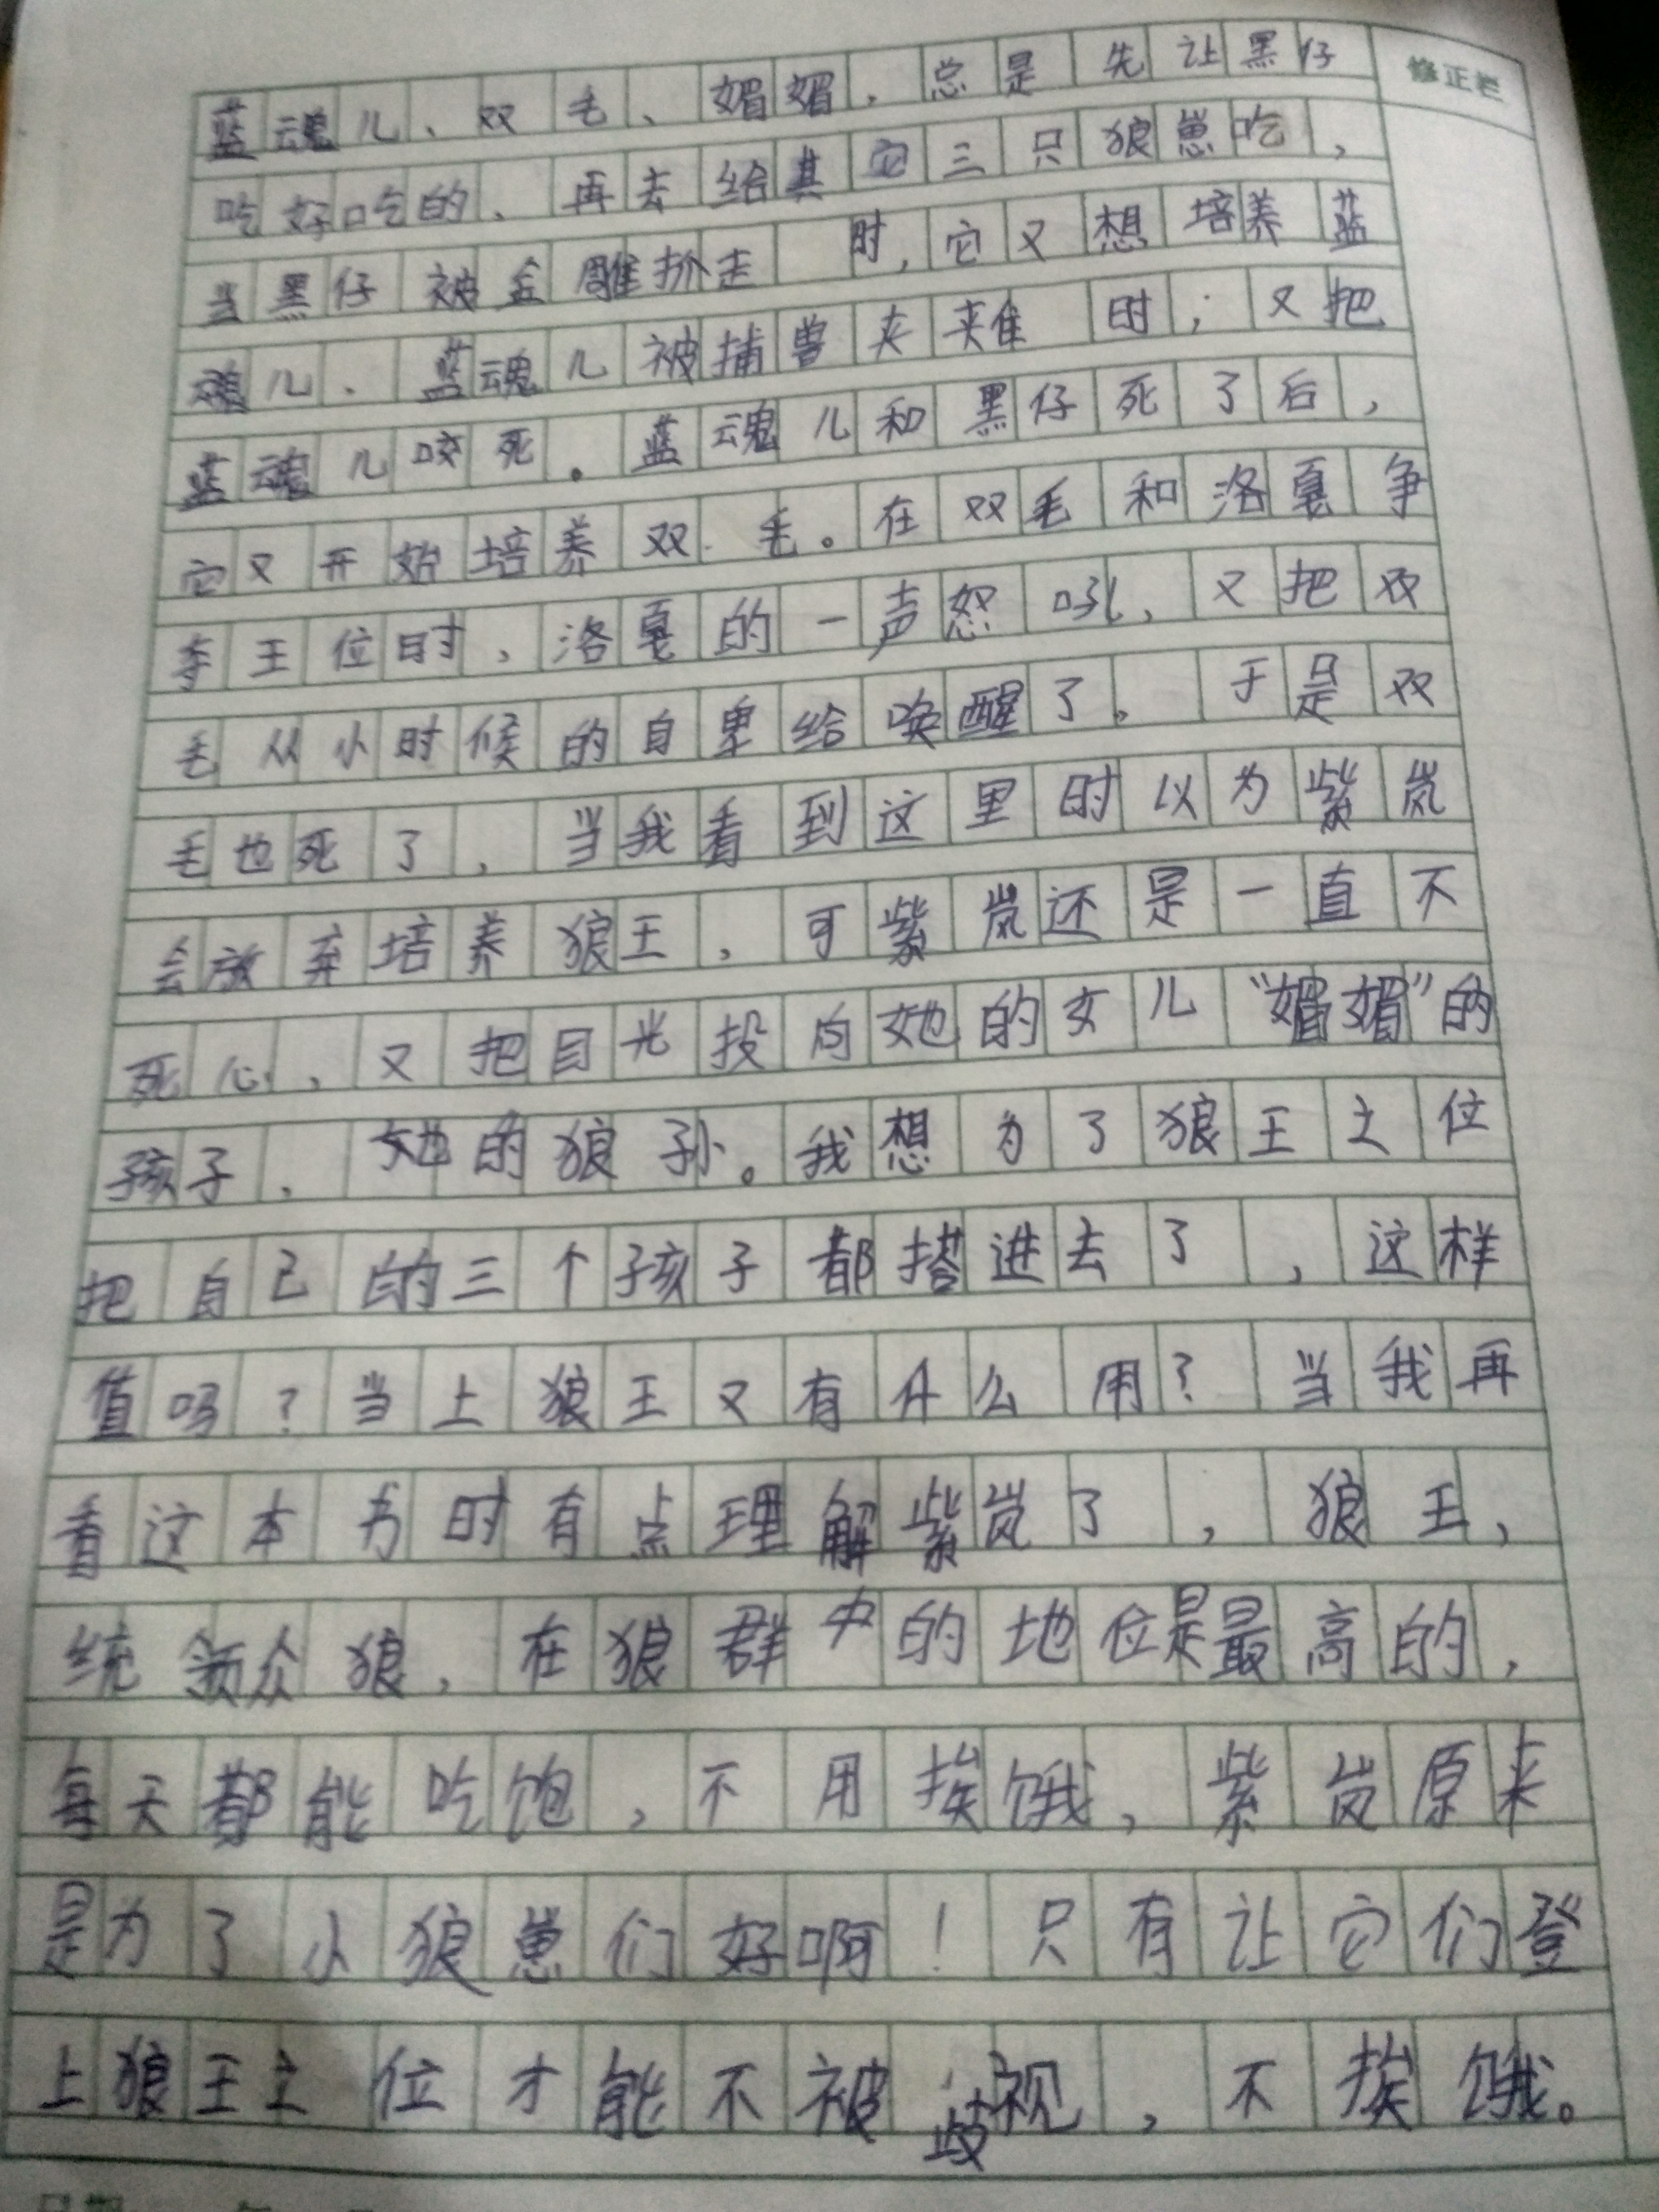 修正栏
蓝魂儿、双毛、媚媚，总是先让黑仔
吃好吃的、再去给其它三只狼崽吃，
当黑仔被金雕抓走时，它又想培养蓝
魂儿、蓝魂儿被捕兽夹夹住时；又把
蓝魂儿咬死。蓝魂儿和黑仔死了后，
它又开始培养双毛。在双毛和洛戛争
夺王位时，洛戛的一声怒吼，又把双
毛从小时候的自卑给唤醒了。于是双
毛也死了，当我看到这里时以为紫岚
会放弃培养狼王，可紫岚还是一直不
死心，又把目光投向她的女儿“媚媚”的
孩子，她的狼孙。我想为了狼王之位
把自己的三个孩子都搭进去了，这样
值吗？当上狼王又有什么用？当我再
看这本书时有点理解紫岚了，狼王，
统领众狼，在狼群中的地位是最高的，
每天都能吃饱，不用挨饿，紫岚原来
是为了小狼崽们好啊！只有让它们登
上狼王之位才能不被歧视，不挨饿。